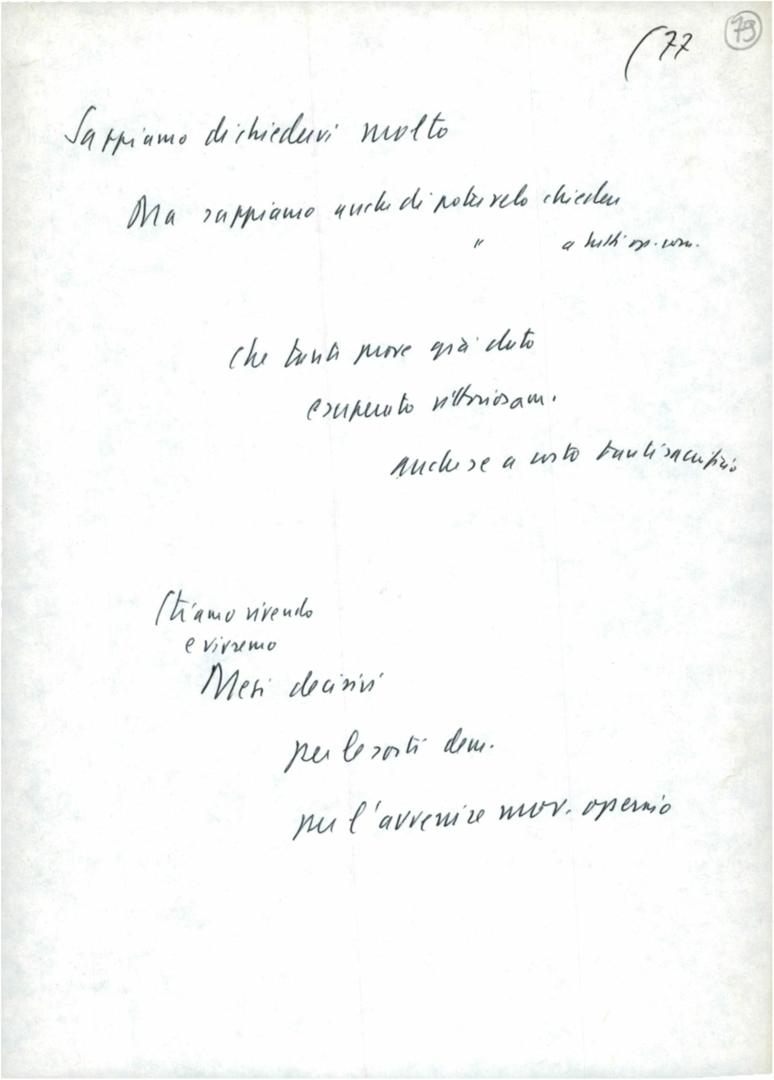 (77 79
Sappiamo di chiedervi molto
Ma sappiamo anche di potervelo chiedere
" a tutti op. com.
Che tanti prove già dato
e superato vittoriosam.
anche se a costo tanti sacrifici
Stiamo vivendo
e vivremo
Mesi decisivi
per le sorti dem.
per l'avvenire mov. operaio